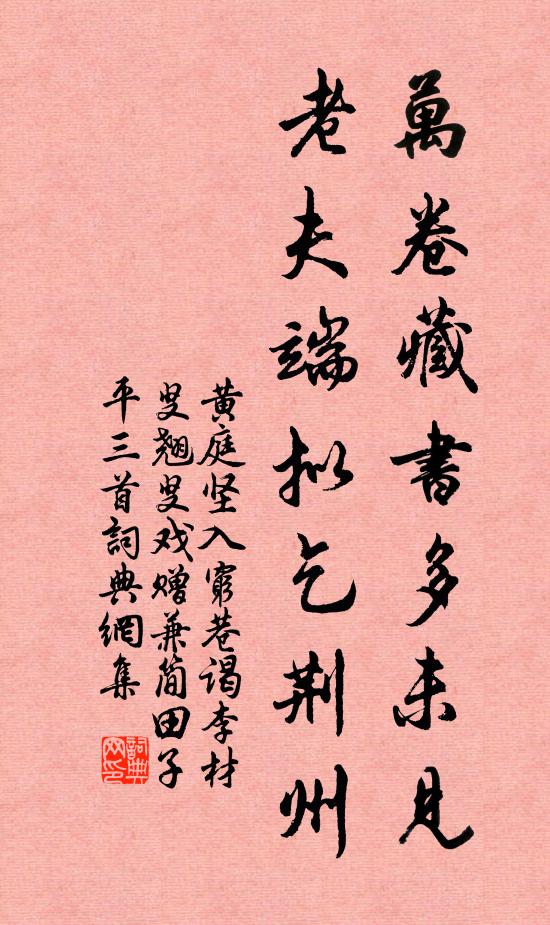 萬卷藏書多未見
老夫端拟乞荆州
黄庭坚入窮巷谒李材
叟翘叟戏赠兼简田子
平三首詞典網集
詞典
网印